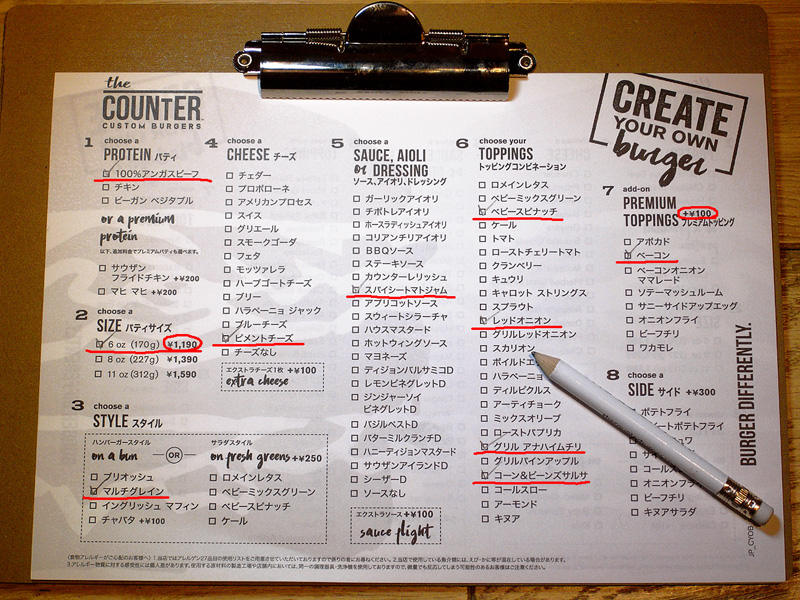 the
COUNTER
CUSTOM BURGERS
CREATE
YOUR OWN
burger
1 choose a
PROTEIN パティ
100%アンガスビーフ
チキン
ビーガン ベジタブル
or a premium
protein
以下、追加料金でプレミアムパティも選べます。
サウザン
フライドチキン +¥200
マヒ マヒ +¥200
2 choose a
SIZE パティサイズ
6 oz (170g) ¥1,190
8 oz (227g) ¥1,390
11 oz (312g) ¥1,590
3 choose a
STYLE スタイル
ハンバーガースタイル
on a bun
OR
サラダスタイル
on fresh greens +¥250
ブリオッシュ
マルチグレイン
イングリッシュ マフィン
チャバタ +¥100
ロメインレタス
ベビーミックスグリーン
ベビースピナッチ
ケール
4 choose a
CHEESE チーズ
チェダー
プロボローネ
アメリカンプロセス
スイス
グリエール
スモークゴーダ
フェタ
モッツァレラ
ハーブゴートチーズ
ブリー
ハラペーニョ ジャック
ブルーチーズ
ピメントチーズ
チーズなし
エクストラチーズ1枚 +¥100
extra cheese
5 choose a
SAUCE, AIOLI
or DRESSING
ソース、アイオリ、ドレッシング
ガーリックアイオリ
チポトレアイオリ
ホースラディッシュアイオリ
コリアンチリアイオリ
BBQソース
ステーキソース
カウンターレリッシュ
スパイシートマトジャム
アプリコットソース
スウィートシラーチャ
ハウスマスタード
ホットウィングソース
マヨネーズ
ディジョンバルサミコD
レモンビネグレットD
ジンジャーソイ
ビネグレットD
バジルペストD
バターミルクランチD
ハニーディジョンマスタード
サウザンアイランドD
シーザーD
ソースなし
エクストラソース +¥100
sauce flight
6 choose your
TOPPINGS
トッピングコンビネーション
ロメインレタス
ベビーミックスグリーン
ベビースピナッチ
ケール
トマト
ローストチェリートマト
クランベリー
キュウリ
キャロット ストリングス
スプラウト
レッドオニオン
グリルレッドオニオン
スカリオン
ボイルドエ
ハラペーニョ
ディルピクルス
アーティチョーク
ミックスオリーブ
ローストパプリカ
グリル アナハイムチリ
グリルパインアップル
コーン&ビーンズサルサ
コールスロー
アーモンド
キヌア
7 add-on
PREMIUM
TOPPINGS +¥100
プレミアムトッピング
アボカド
ベーコン
ベーコンオニオン
ママレード
ソテーマッシュルーム
サニーサイドアップエッグ
オニオンフライ
ビーフチリ
ワカモレ
8 choose a
SIDE サイド +¥300
ポテトフライ
ートポテトフライ
コールス
オニオンフ
ビーフチリ
キヌアサラダ
BURGER DIFFERENTLY.
JP_CYOB